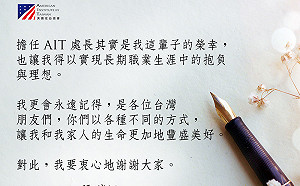 AMERICAN
INSTITUTE IN
TAIWAN
美國在台協會
擔任 AIT 處長其實是我這輩子的榮幸，
也讓我得以實現長期職業生涯中的抱負
與理想。
我更會永遠記得，是各位台灣
朋友們，你們以各種不同的方式，
讓我和我家人的生命更加地豐盛美好。
對此，我要衷心地謝謝大家。